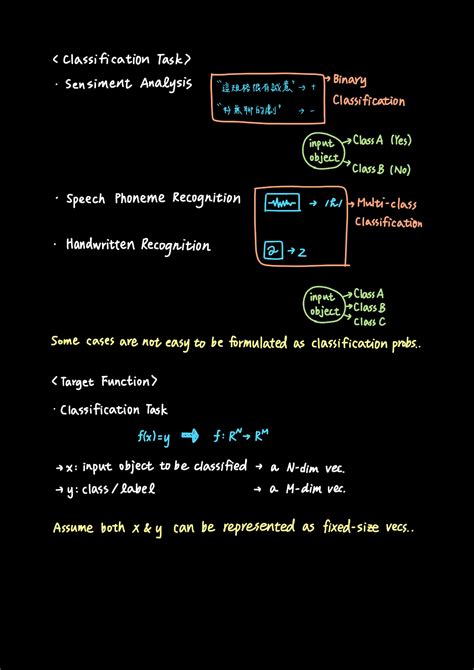 <Classification Task>
· Sensiment Analysis
"這規格很有誠意" → +
"好無聊的劇" → -
→ Binary
Classification
input
object
→ Class A (Yes)
→ Class B (No)
· Speech Phoneme Recognition
→ /h/
→ Multi-class
Classification
· Handwritten Recognition
2 → 2
input
object
→ Class A
→ Class B
→ Class C
Some cases are not easy to be formulated as classification probs..
<Target Function>
· Classification Task
f(x)=y ⇒ f: R^N → R^M
→ x: input object to be classified → a N-dim vec.
→ y: class / label → a M-dim vec.
Assume both x & y can be represented as fixed-size vecs..